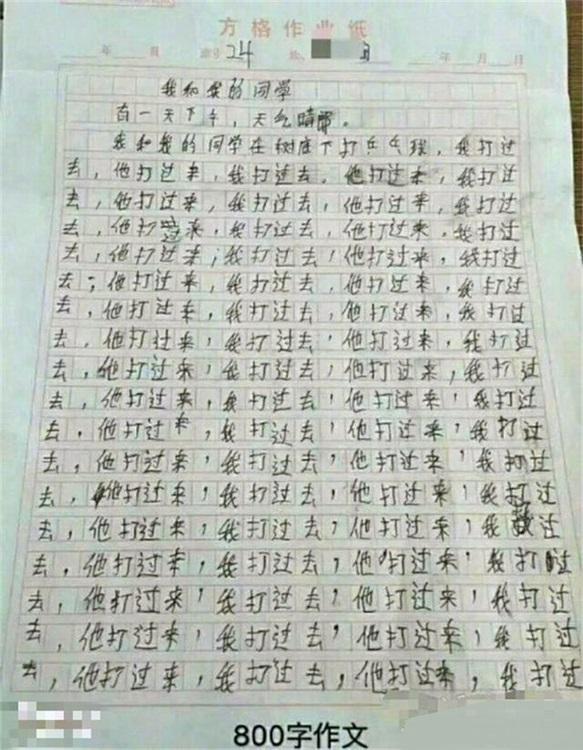 方格作业纸
年 月 24 年 月 日
我和我的同学
有一天下午，天气晴
我和我的同学在树底下打乒乓球，我打过
去，他打过来，我打过去，他打过来，我打过
去，他打过来，我打过去，他打过来，我打过
去，他打过来，我打过去，他打过来，我打过
去，他打过来；我打过去，他打过来，我打过
去；他打过来，我打过去，他打过来，我打过
去，他打过来，我打过去，他打过来，我打过
去，他打过来，我打过去，他打过来，我打过
去，他打过来，我打过去，他打过来，我打过
去，他打过来，我打过去，他打过来，我打过
去，他打过来，我打过去，他打过来，我打过
去，他打过来，我打过去，他打过来，我打过
去，他打过来，我打过去，他打过来，我打过
去，他打过来，我打过去，他打过来，我过
去，他打过来，我打过去，他打过来，我打过
去，他打过来，我打过去，他打过来，我打过
去，他打过来，我打过去，他打过来，我打过
去，他打过来，我打过去，他打过来，我打过
800字作文